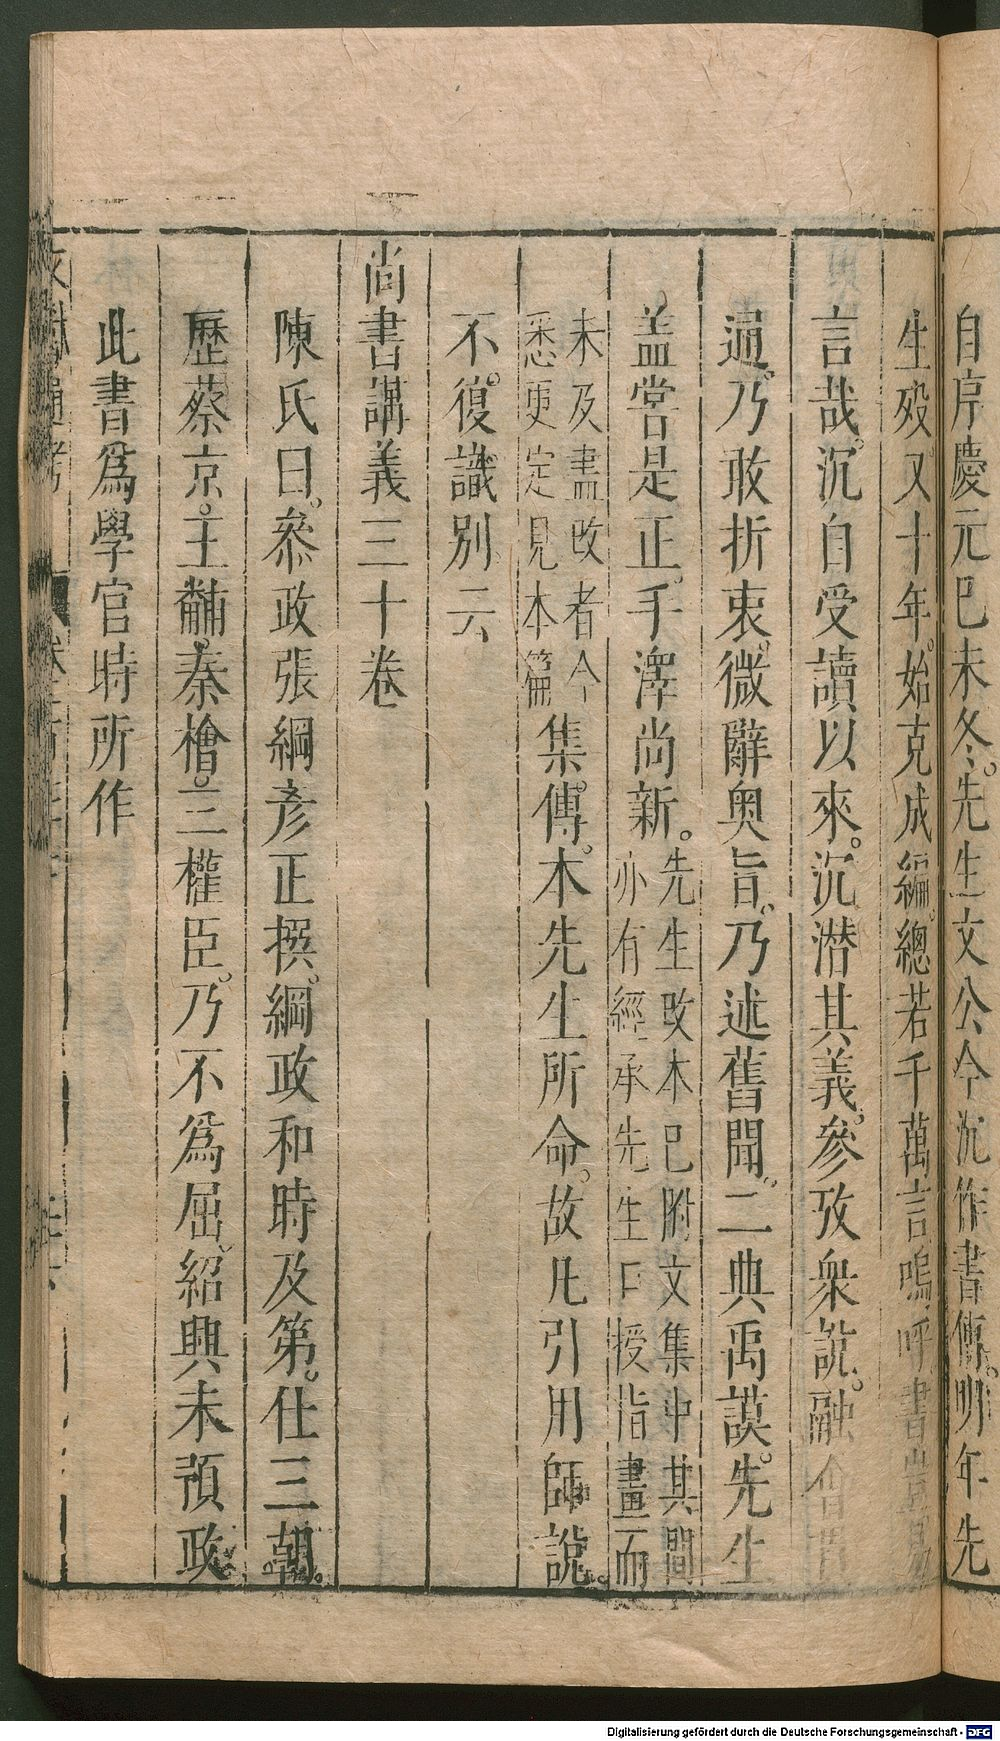 自序慶元已未冬。先生文公令沉作書傳。明年先
生歿。又十年。始克成編。總若干萬言嗚呼書豈易
言哉。沉自受讀以來。沉潜其義。參攷衆說。融會貫
通。乃敢折衷。微辭奧旨。乃述舊聞。二典禹謨。先生
蓋嘗是正。手澤尚新。先生改本已附文集中其間亦有經承先生口授指畫而
未及盡改者今悉更定見本篇集傳。本先生所命。故凡引用師說。
不復識別云
尚書講義三十卷
陳氏曰。叅政張綱彥正撰。綱政和時及第。仕三朝。
歷蔡京。王黼。秦檜。三權臣。乃不爲屈。紹興末預政。
此書爲學官時所作
Digitalisierung gefördert durch die Deutsche Forschungsgemeinschaft - DFG